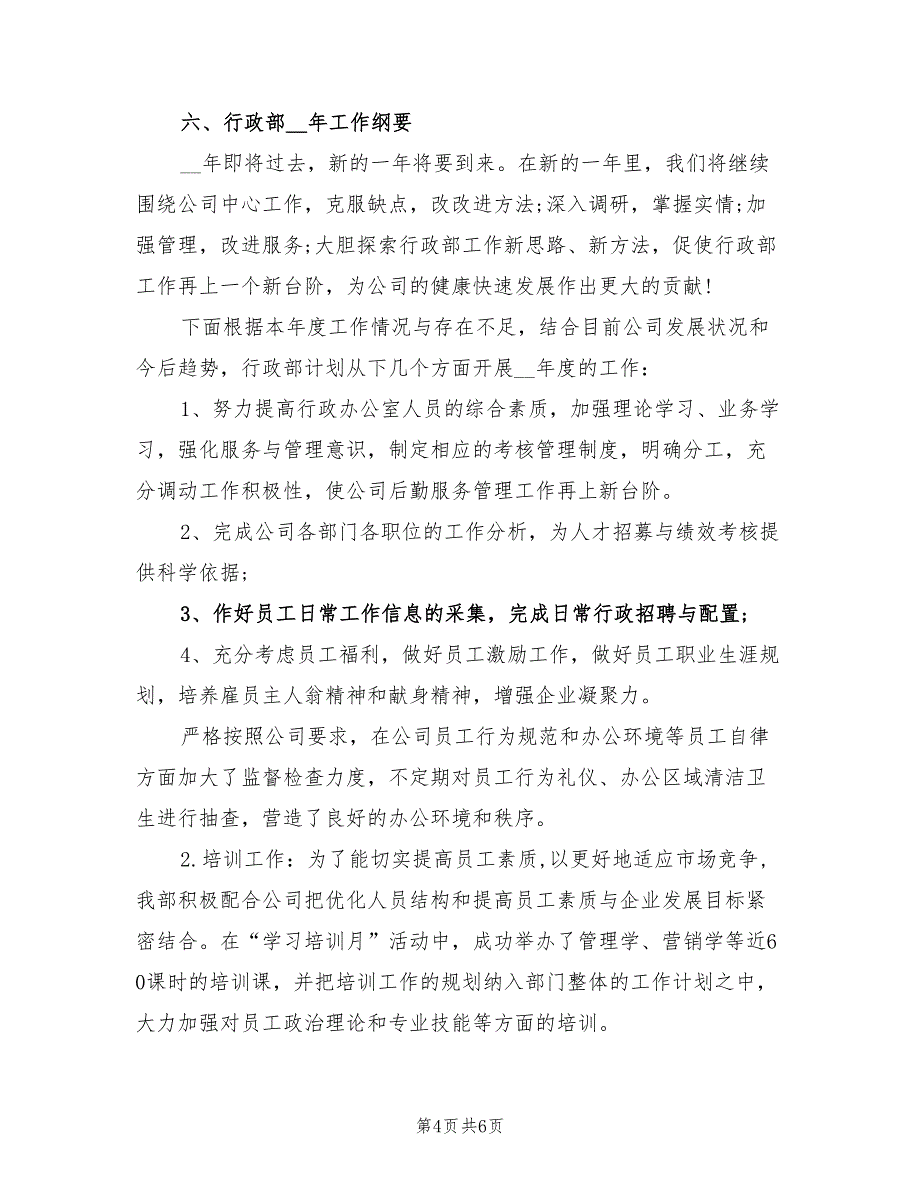 六、行政部__年工作纲要
__年即将过去，新的一年将要到来。在新的一年里，我们将继续
围绕公司中心工作，克服缺点，改改进方法;深入调研，掌握实情;加
强管理，改进服务;大胆探索行政部工作新思路、新方法，促使行政部
工作再上一个新台阶，为公司的健康快速发展作出更大的贡献!
下面根据本年度工作情况与存在不足，结合目前公司发展状况和
今后趋势，行政部计划从下几个方面开展__年度的工作：
1、努力提高行政办公室人员的综合素质，加强理论学习、业务学
习，强化服务与管理意识，制定相应的考核管理制度，明确分工，充
分调动工作积极性，使公司后勤服务管理工作再上新台阶。
2、完成公司各部门各职位的工作分析，为人才招募与绩效考核提
供科学依据;
3、作好员工日常工作信息的采集，完成日常行政招聘与配置;
4、充分考虑员工福利，做好员工激励工作，做好员工职业生涯规
划，培养雇员主人翁精神和献身精神，增强企业凝聚力。
严格按照公司要求，在公司员工行为规范和办公环境等员工自律
方面加大了监督检查力度，不定期对员工行为礼仪、办公区域清洁卫
生进行抽查，营造了良好的办公环境和秩序。
2.培训工作：为了能切实提高员工素质,以更好地适应市场竞争,
我部积极配合公司把优化人员结构和提高员工素质与企业发展目标紧
密结合。在“学习培训月”活动中，成功举办了管理学、营销学等近6
0课时的培训课，并把培训工作的规划纳入部门整体的工作计划之中，
大力加强对员工政治理论和专业技能等方面的培训。
第4页 共6页